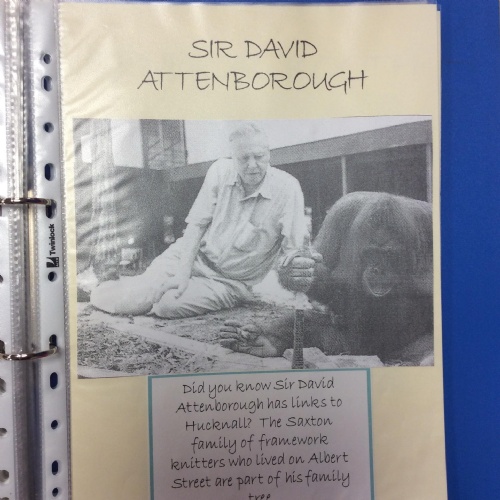 SIR DAVID
ATTENBOROUGH
Twinlock
Did you know Sir David
Attenborough has links to
Hucknall? The Saxton
family of framework
knitters who lived on Albert
Street are part of his family
tree